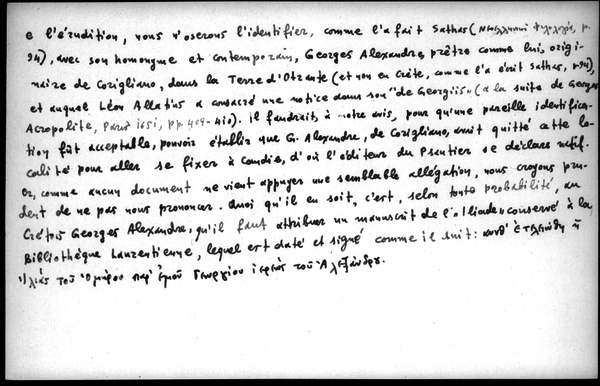 e l'érudition, nous n'oserons l'identifier, comme l'a fait Sathas (Νεοελληνική Φιλολογία, p.
94), avec son homonyme et contemporain, Georges Alexandre, prêtre comme lui, origi-
naire de Corigliano, dans la Terre d'Otrante (et non en Crète, comme l'a écrit Sathas, p. 94),
et auquel Léon Allatius a consacré une notice dans son "de Georgiis" (à la suite de Georges
Acropolite, Paris 1651, pp. 409-410). Il faudrait, à notre avis, pour qu'une pareille identifica-
tion fût acceptable, pouvoir établir que G. Alexandre, de Corigliano, avait quitté cette lo-
calité pour aller se fixer à Candie, d'où l'éditeur du Psautier se déclare natif.
Or, comme aucun document ne vient appuyer une semblable allégation, nous croyons pru-
dent de ne pas nous prononcer. Quoi qu'il en soit, c'est, selon toute probabilité, au
Crétois Georges Alexandre, qu'il faut attribuer un manuscrit de l'«Iliade» conservé à la
Bibliothèque Laurentienne, lequel est daté et signé comme il suit: ἐτελειώθη ἡ
Ἰλιὰς τοῦ Ὁμήρου παρ' ἐμοῦ Γεωργίου ἱερέως τοῦ Ἀλεξάνδρου.